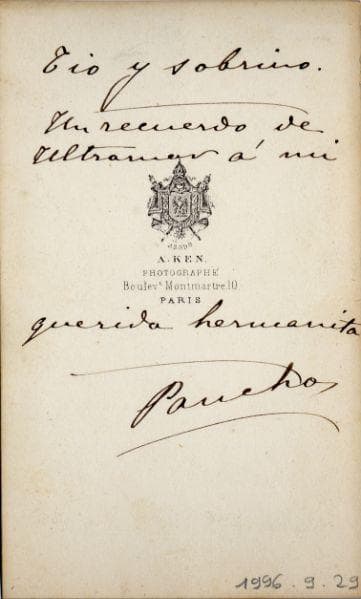 Tio y sobrino.
Un recuerdo de
Ultramar á mi
A. KEN.
PHOTOGRAPHE
Boulevt Montmartre.10
PARIS
querida hermanita
Pancho
1996.9.29